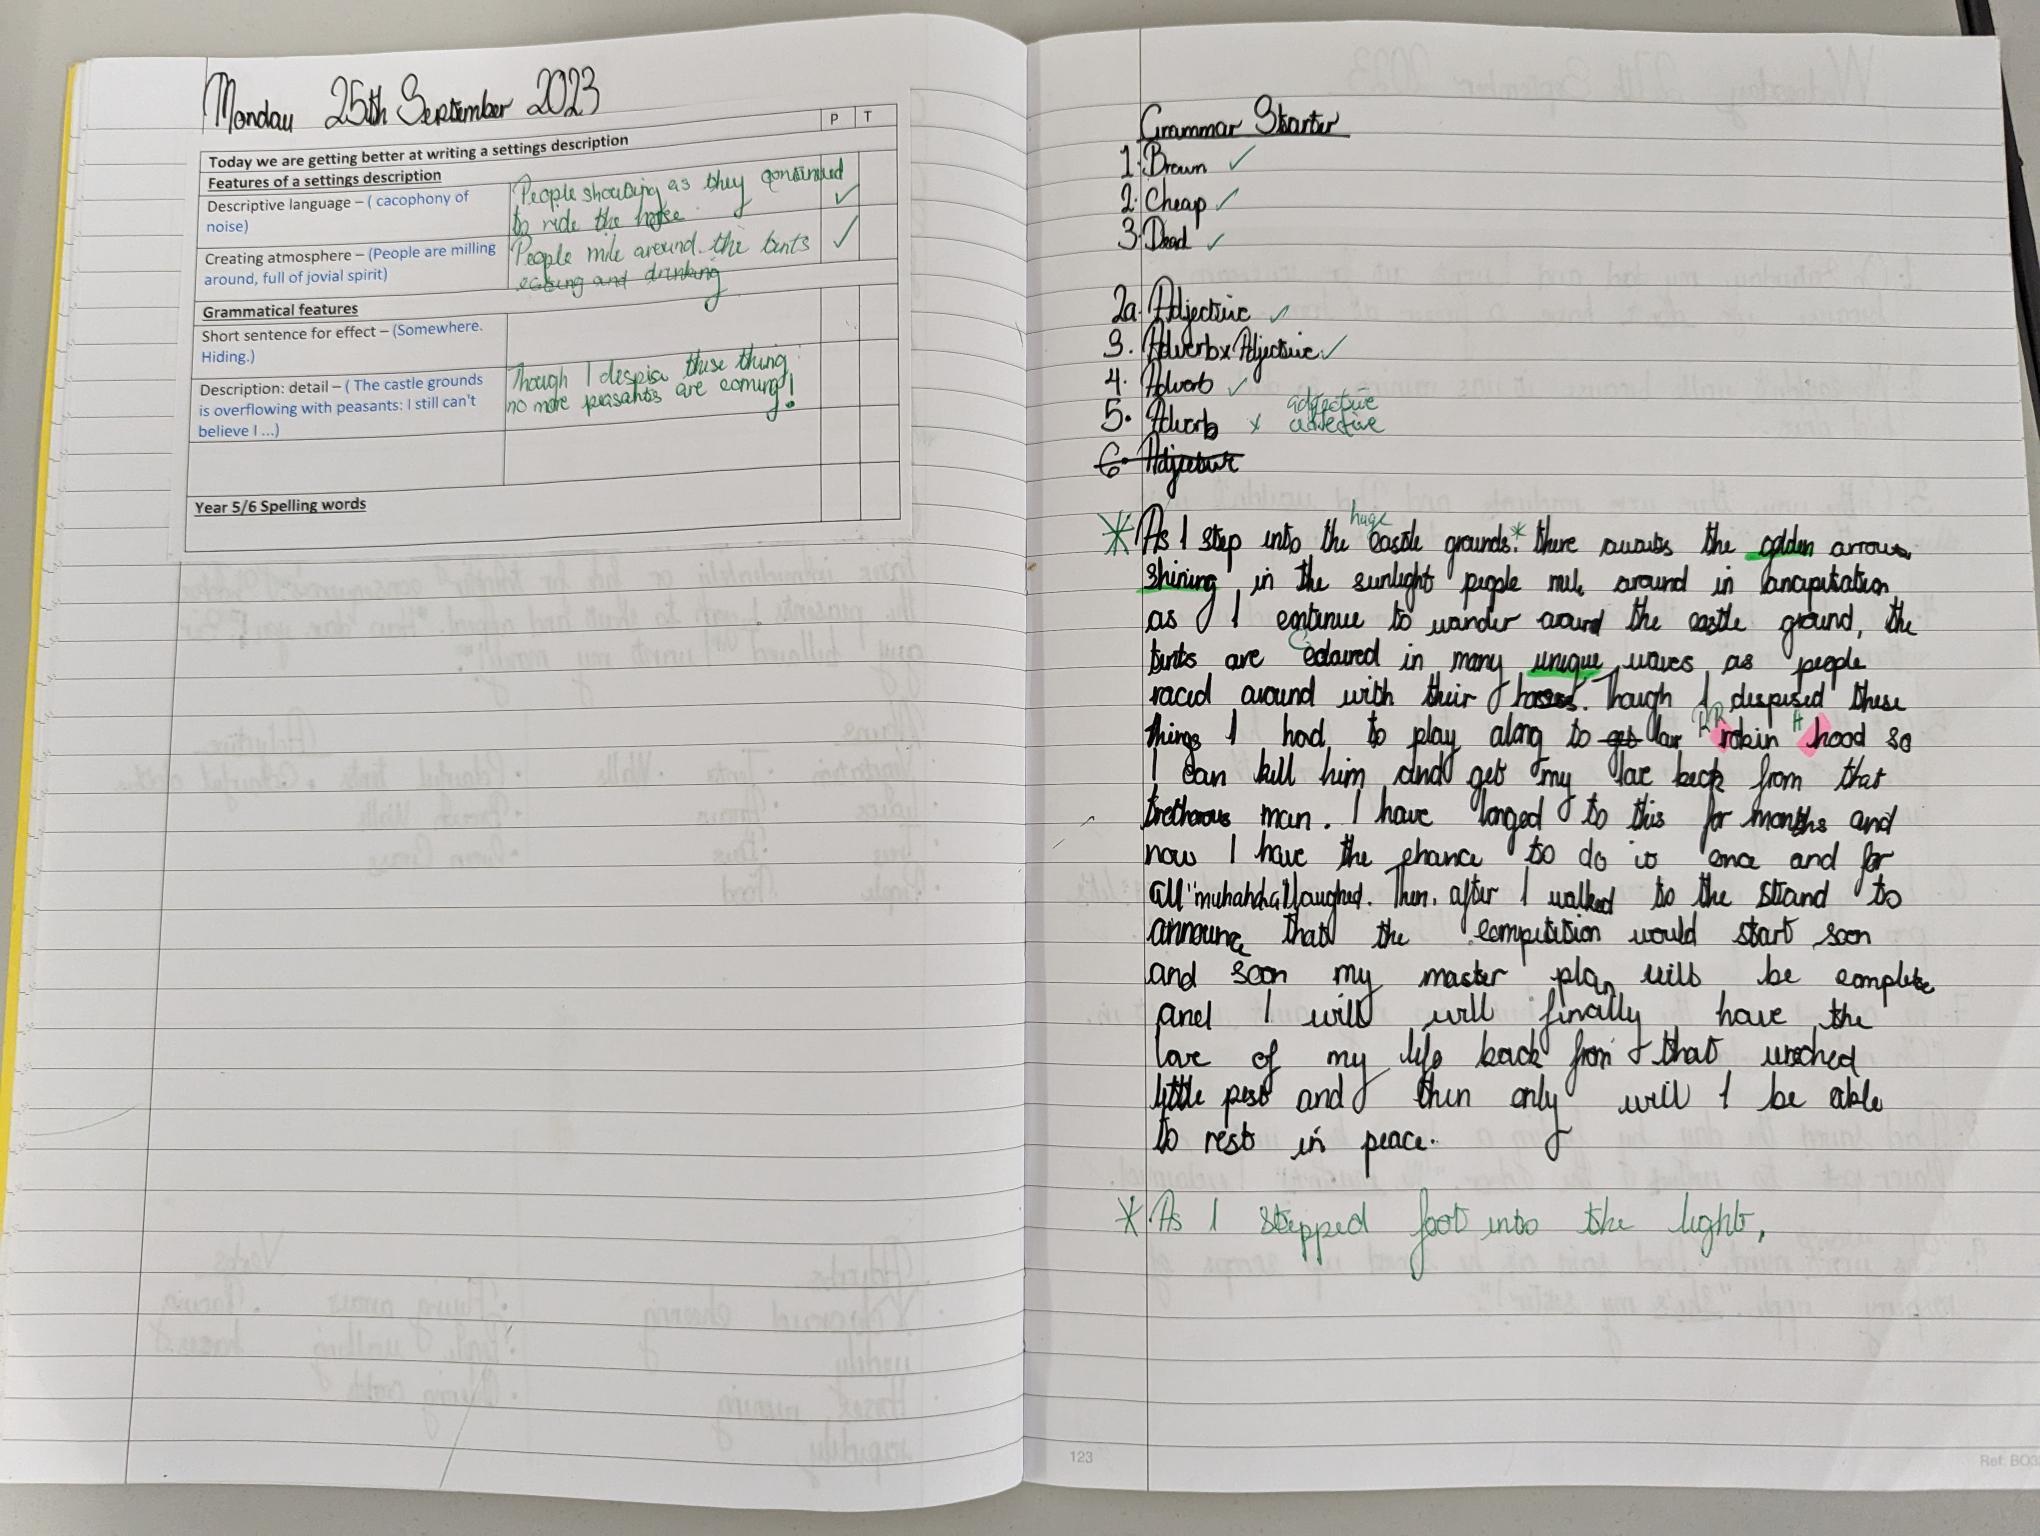 Monday 25th September 2023
P T
Today we are getting better at writing a settings description
Features of a settings description
Descriptive language – ( cacophony of
noise)
People shouting as they
to ride the
✓
Creating atmosphere – (People are milling
around, full of jovial spirit)
People mile around the tents
eating and drinking
✓
Grammatical features
Short sentence for effect – (Somewhere.
Hiding.)
Description: detail – ( The castle grounds
is overflowing with peasants: I still can't
believe I ...)
Though I despise these thing
no more peasants are coming!
Year 5/6 Spelling words
Grammar Starter
1. Brown ✓
2. Cheap ✓
3. Dead ✓
2a. Adjective ✓
3. Adverb x Adjective ✓
4. Adverb ✓
adjective
5. Adverb x adjective
6. Adjective
huge
* As I step into the castle grounds.* there awaits the golden arrow
shining in the sunlight people mile around in
as I continue to wander around the castle ground, the
tents are coloured in many unique waves as people
raced around with their horses. Though I despised these
R R H
things I had to play along to get lar robin hood so
I can kill him and get my love back from that
tretherous man. I have longed to this for months and
now I have the chance to do it once and for
all "muhahaha" I laughed. Then, after I walked to the stand to
announce that the competition would start soon
and soon my master plan will be complete
and I will will finally have the
love of my life back from that wreched
little pest and then only will I be able
to rest in peace.
* As I stepped foot into the light,
123
Ref: BO3